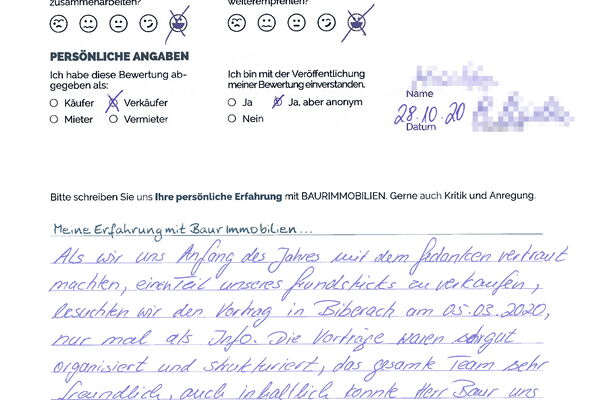 zusammenarbeiten?
weiterempfehlen?
PERSÖNLICHE ANGABEN
Ich habe diese Bewertung ab-
gegeben als:
Käufer
Verkäufer
Mieter
Vermieter
Ich bin mit der Veröffentlichung
meiner Bewertung einverstanden.
Ja
Ja, aber anonym
Nein
Name
28.10.20
Datum
Bitte schreiben Sie uns Ihre persönliche Erfahrung mit BAURIMMOBILIEN. Gerne auch Kritik und Anregung.
Meine Erfahrung mit Baur Immobilien...
Als wir uns Anfang des Jahres mit dem Gedanken vertraut
machten, einen Teil unseres Grundstücks zu verkaufen,
besuchten wir den Vortrag in Biberach am 05.03.2020,
nur mal als Info. Die Vorträge waren sehr gut
organisiert und strukturiert, das gesamte Team sehr
freundlich, auch inhaltlich konnte Herr Baur uns